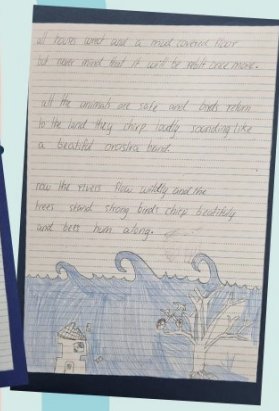 all houses went and a mud covered floor
but never mind that it will be rebilt once more.
all the animals are safe and birds return
to the land they chirp loudly sounding like
a beatiful orcistra band.
now the rivers flow wildly and the
trees stand strong birds chirp beatifuly
and bees hum along.